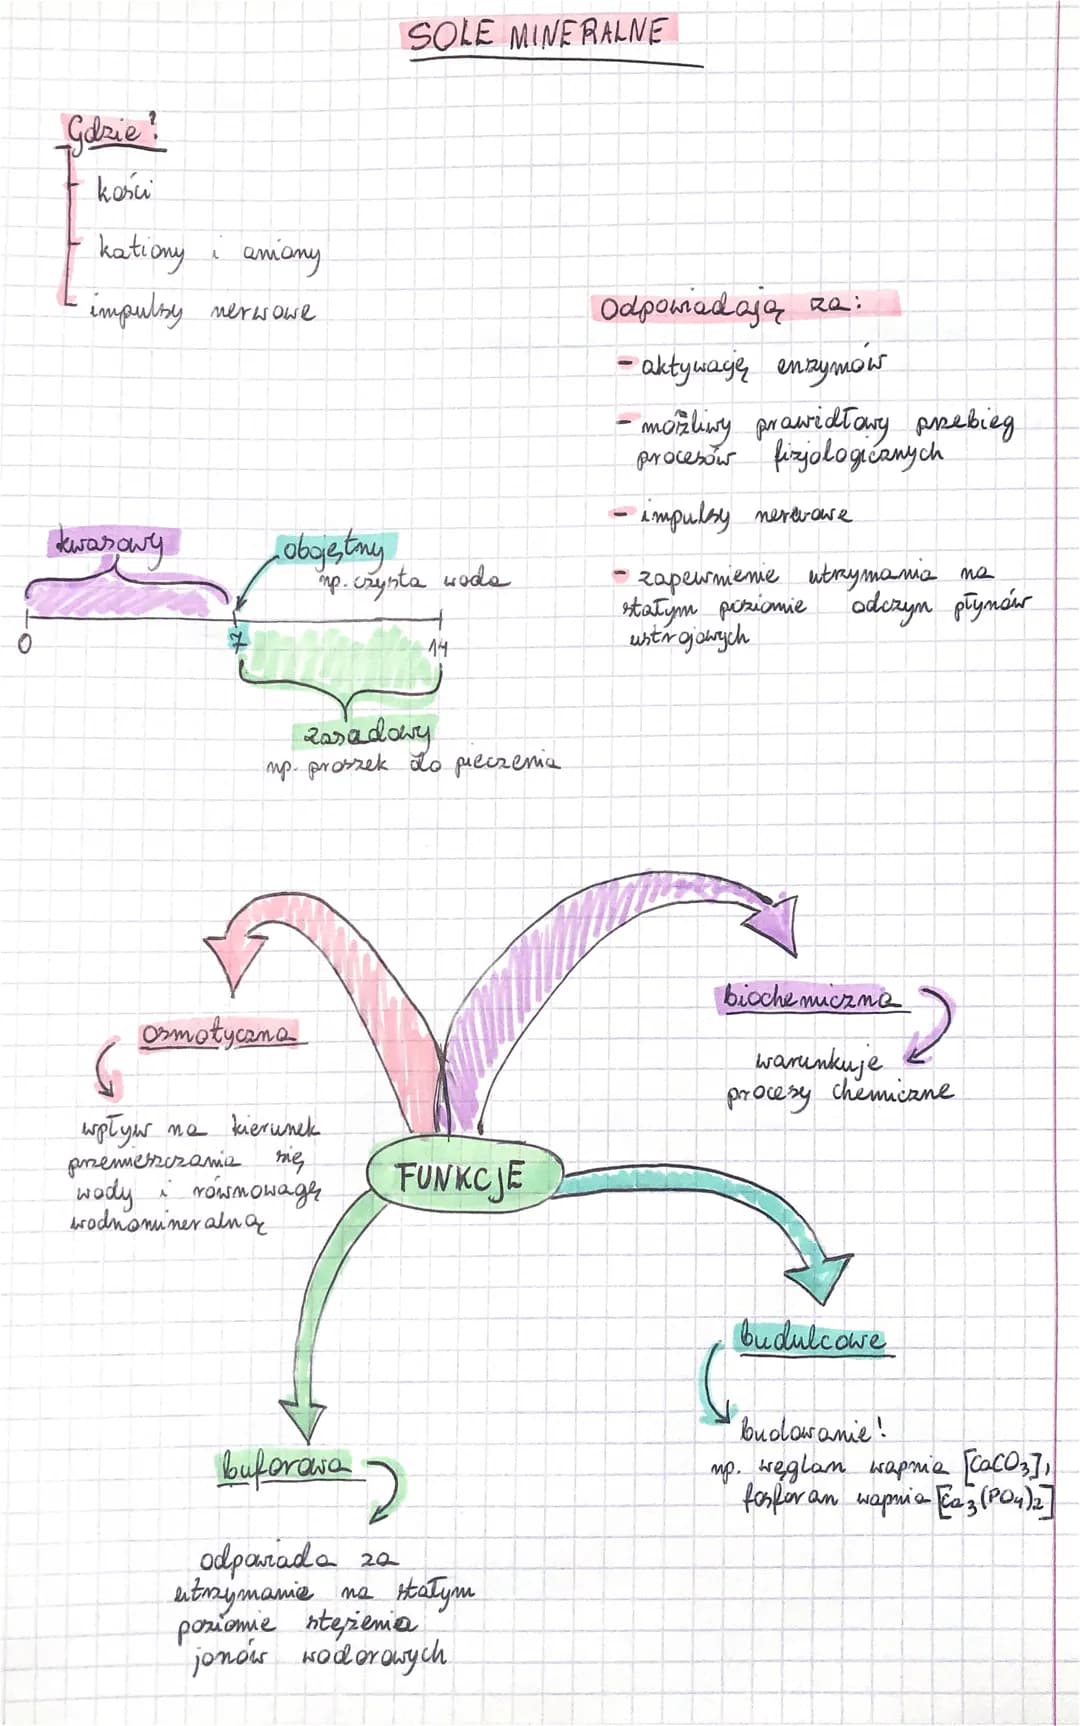 SOLE MINERALNE
Gdzie?
kości
kationy i aniony
impulsy nerwowe
Odpowiadają za:
- aktywację enzymów
- możliwy prawidłowy przebieg
procesów fizjologicznych
- impulsy nerwowe
- zapewnienie utrzymania na
stałym poziomie odczyn płynów
ustrojowych
kwasowy
obojętny
np. czysta woda
0
7
14
zasadowy
np. proszek do pieczenia
biochemiczna
warunkuje
procesy chemiczne
osmotyczna
wpływ na kierunek
przemieszczania się
wody i równowagę
wodnomineralną
FUNKCJE
budulcowe
budowanie!
np. węglan wapnia [CaCO3],
fosforan wapnia [Ca3(PO4)2]
buforowa
odpowiada za
utrzymanie na stałym
poziomie stężenia
jonów wodorowych